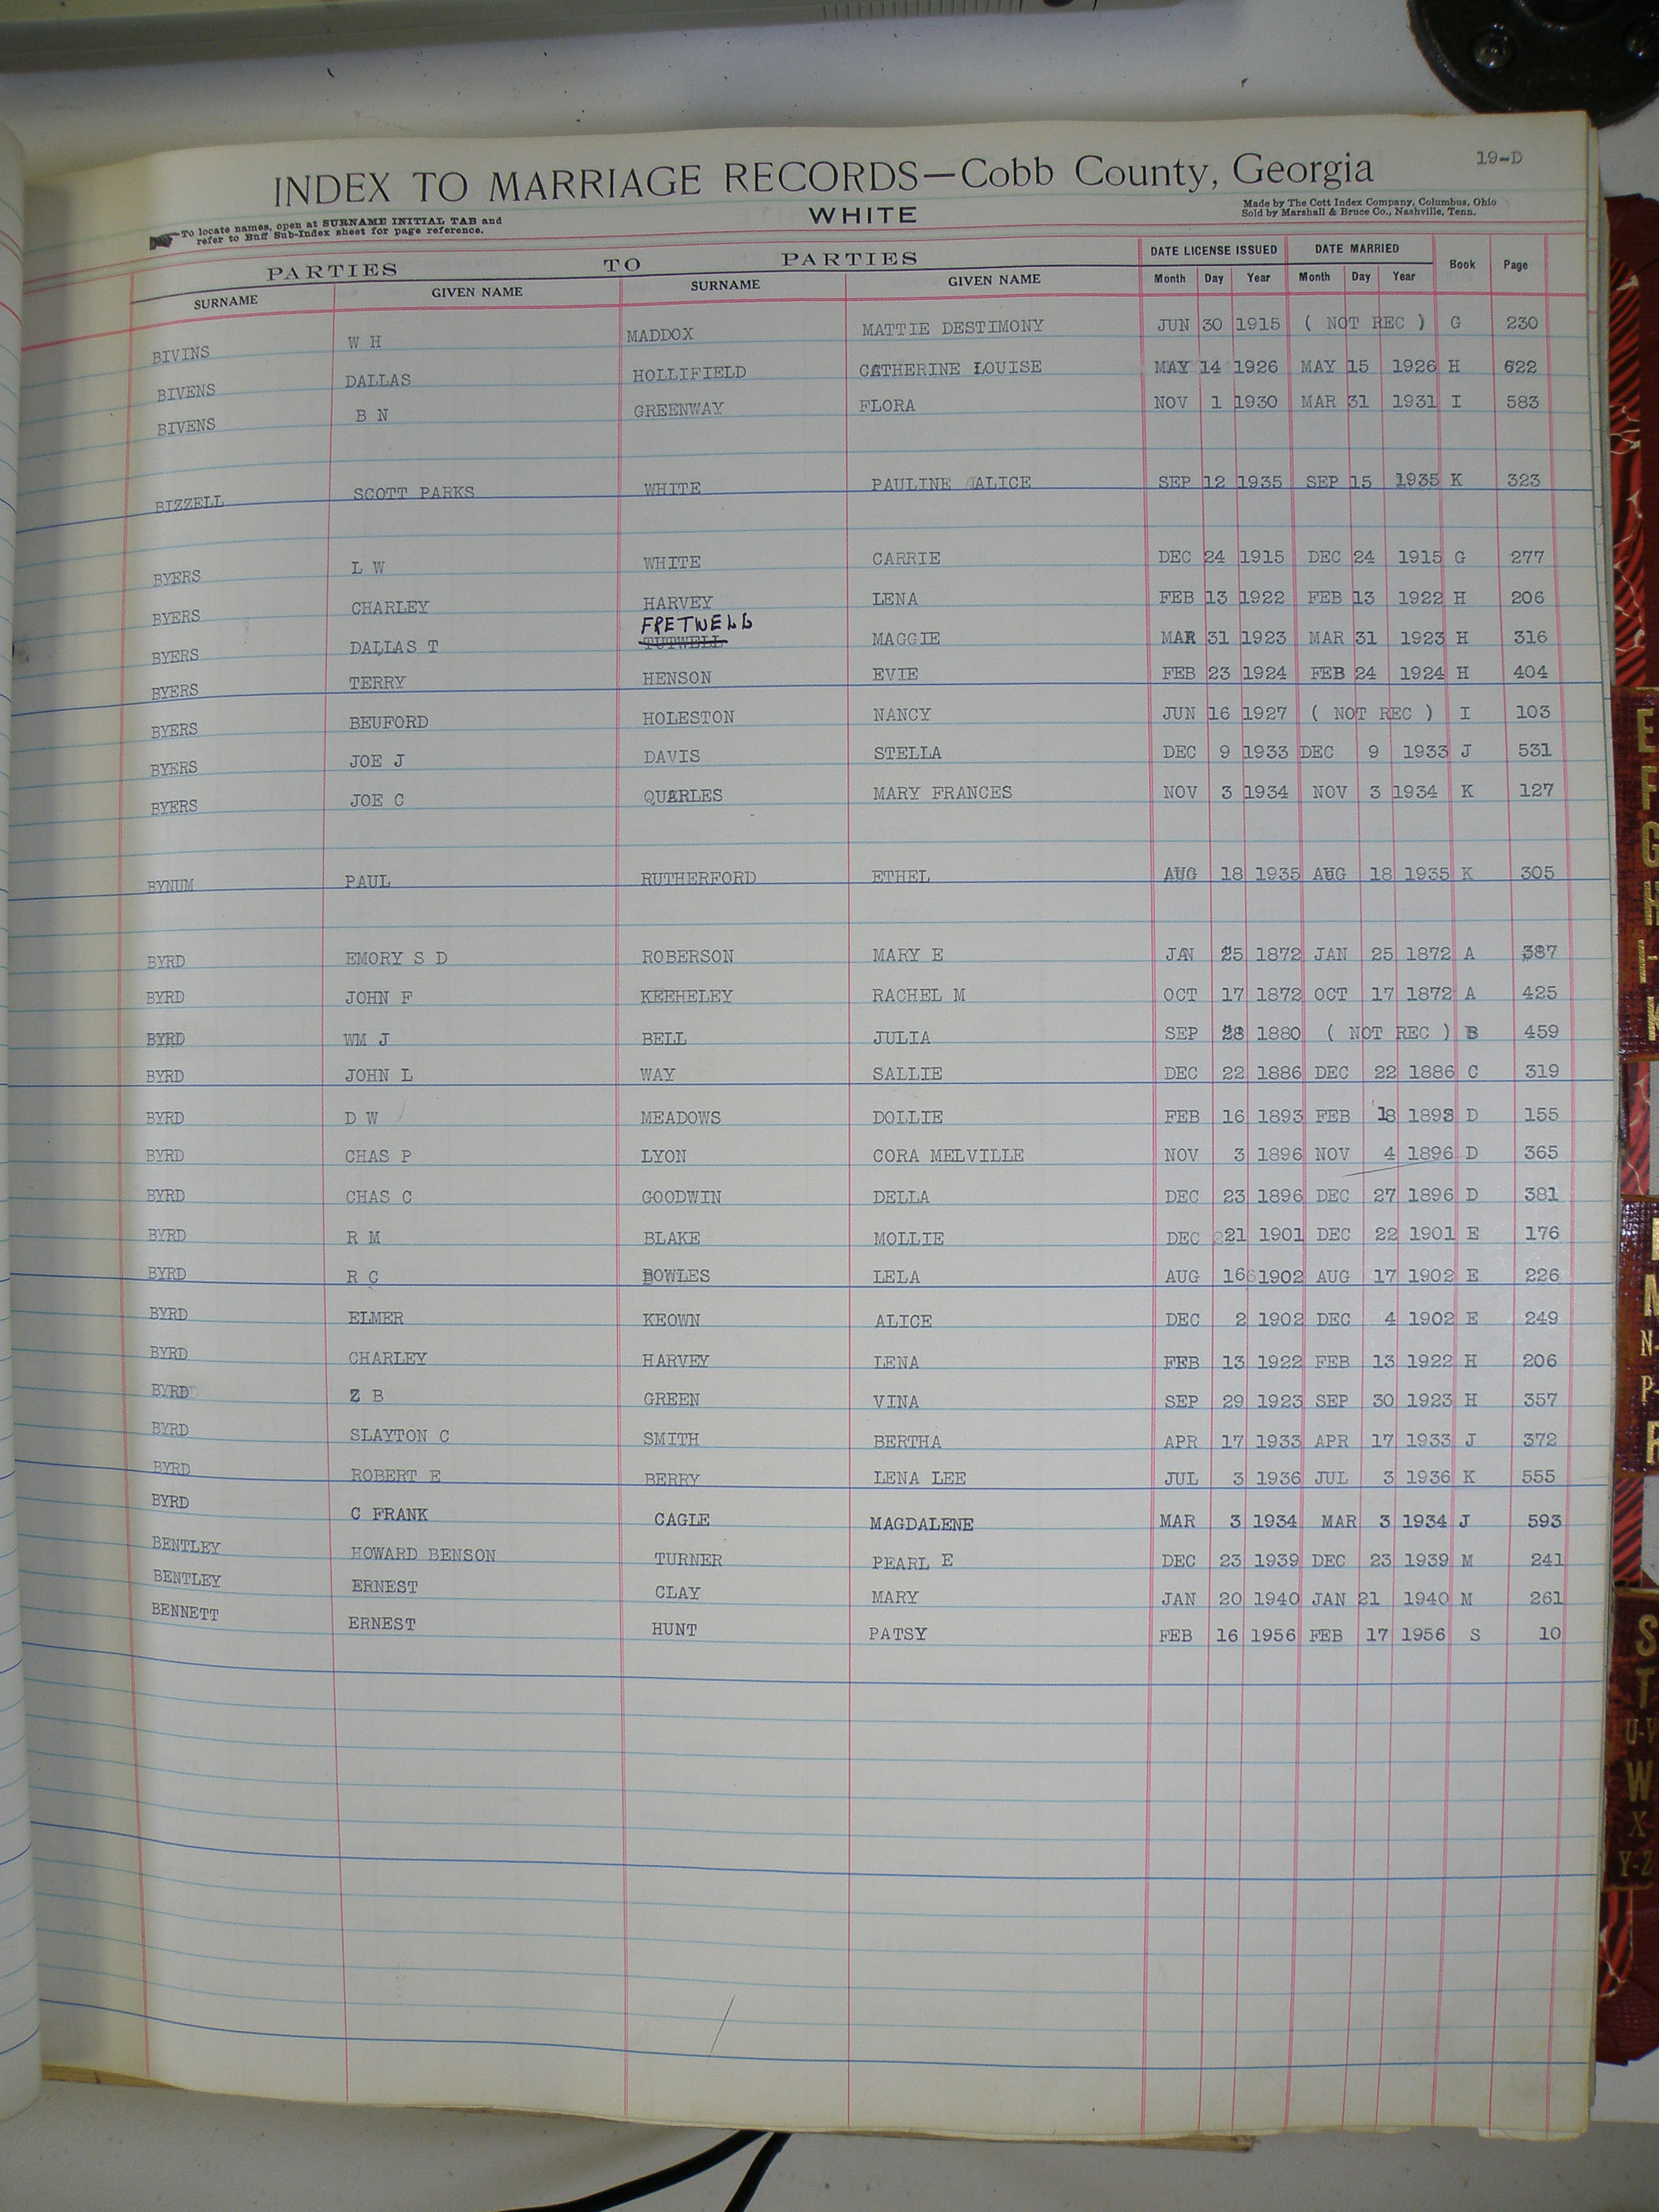 19-D
INDEX TO MARRIAGE RECORDS—Cobb County, Georgia
To locate names, open at SURNAME INITIAL TAB and
refer to Buff Sub-Index sheet for page reference.
WHITE
Made by The Cott Index Company, Columbus, Ohio
Sold by Marshall & Bruce Co., Nashville, Tenn.
PARTIES TO PARTIES DATE LICENSE ISSUED DATE MARRIED Book Page
SURNAME GIVEN NAME SURNAME GIVEN NAME Month Day Year Month Day Year
BIVINS W H MADDOX MATTIE DESTIMONY JUN 30 1915 ( NOT REC ) G 230
BIVENS DALLAS HOLLIFIELD CATHERINE LOUISE MAY 14 1926 MAY 15 1926 H 622
BIVENS B N GREENWAY FLORA NOV 1 1930 MAR 31 1931 I 583
BIZZELL SCOTT PARKS WHITE PAULINE ALICE SEP 12 1935 SEP 15 1935 K 323
BYERS L W WHITE CARRIE DEC 24 1915 DEC 24 1915 G 277
BYERS CHARLEY HARVEY LENA FEB 13 1922 FEB 13 1922 H 206
FRETWELL
BYERS DALLAS T TUTWELL MAGGIE MAR 31 1923 MAR 31 1923 H 316
BYERS TERRY HENSON EVIE FEB 23 1924 FEB 24 1924 H 404
BYERS BEUFORD HOLESTON NANCY JUN 16 1927 ( NOT REC ) I 103
BYERS JOE J DAVIS STELLA DEC 9 1933 DEC 9 1933 J 531
BYERS JOE C QUARLES MARY FRANCES NOV 3 1934 NOV 3 1934 K 127
BYNUM PAUL RUTHERFORD ETHEL AUG 18 1935 AUG 18 1935 K 305
BYRD EMORY S D ROBERSON MARY E JAN 25 1872 JAN 25 1872 A 387
BYRD JOHN F KEEHELEY RACHEL M OCT 17 1872 OCT 17 1872 A 425
BYRD WM J BELL JULIA SEP 28 1880 ( NOT REC ) B 459
BYRD JOHN L WAY SALLIE DEC 22 1886 DEC 22 1886 C 319
BYRD D W MEADOWS DOLLIE FEB 16 1893 FEB 18 1893 D 155
BYRD CHAS P LYON CORA MELVILLE NOV 3 1896 NOV 4 1896 D 365
BYRD CHAS C GOODWIN DELLA DEC 23 1896 DEC 27 1896 D 381
BYRD R M BLAKE MOLLIE DEC 21 1901 DEC 22 1901 E 176
BYRD R C BOWLES LELA AUG 16 1902 AUG 17 1902 E 226
BYRD ELMER KEOWN ALICE DEC 2 1902 DEC 4 1902 E 249
BYRD CHARLEY HARVEY LENA FEB 13 1922 FEB 13 1922 H 206
BYRD Z B GREEN VINA SEP 29 1923 SEP 30 1923 H 357
BYRD SLAYTON C SMITH BERTHA APR 17 1933 APR 17 1933 J 372
BYRD ROBERT E BERRY LENA LEE JUL 3 1936 JUL 3 1936 K 555
BYRD C FRANK CAGLE MAGDALENE MAR 3 1934 MAR 3 1934 J 593
BENTLEY HOWARD BENSON TURNER PEARL E DEC 23 1939 DEC 23 1939 M 241
BENTLEY ERNEST CLAY MARY JAN 20 1940 JAN 21 1940 M 261
BENNETT ERNEST HUNT PATSY FEB 16 1956 FEB 17 1956 S 10
E
F
G
H
K
M
N-
P-
R
S
T
U-V
W
X
Y-Z